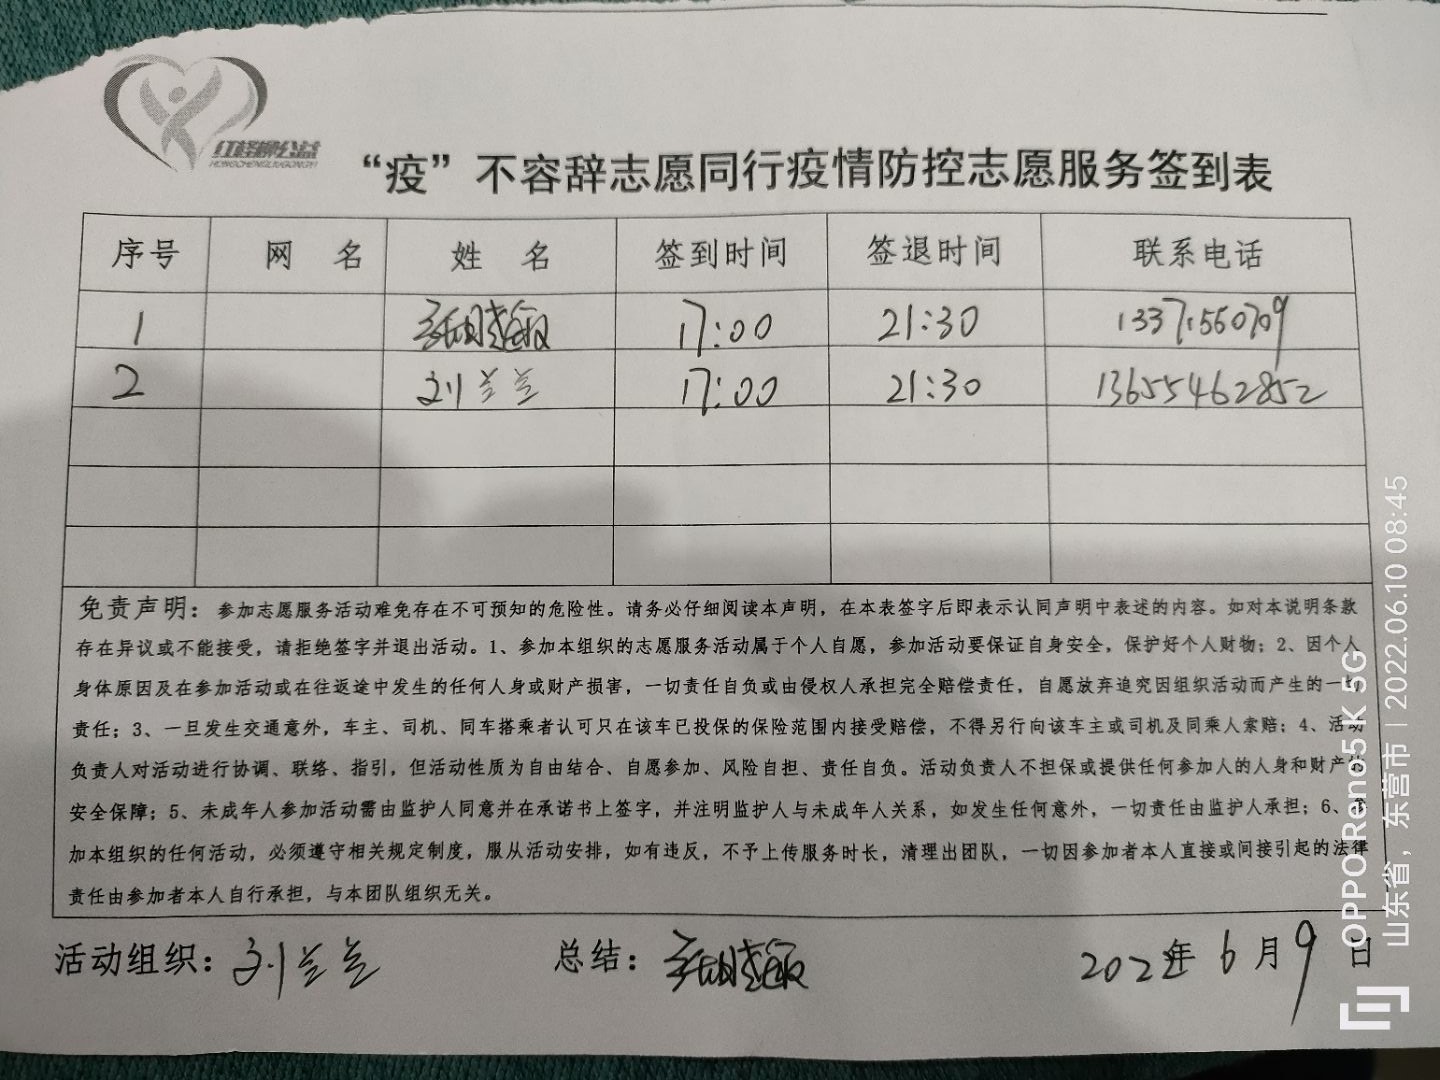 红柽柳公益
HONGCHENGLIUGONGYI
“疫”不容辞志愿同行疫情防控志愿服务签到表
序号 网 名 姓 名 签到时间 签退时间 联系电话
1 17:00 21:30 13371560709
2 刘兰兰 17:00 21:30 13655462852
免责声明：参加志愿服务活动难免存在不可预知的危险性。请务必仔细阅读本声明，在本表签字后即表示认同声明中表述的内容。如对本说明条款
存在异议或不能接受，请拒绝签字并退出活动。1、参加本组织的志愿服务活动属于个人自愿，参加活动要保证自身安全，保护好个人财物；2、因个人
身体原因及在参加活动或在往返途中发生的任何人身或财产损害，一切责任自负或由侵权人承担完全赔偿责任，自愿放弃追究因组织活动而产生的一切
责任；3、一旦发生交通意外，车主、司机、同车搭乘者认可只在该车已投保的保险范围内接受赔偿，不得另行向该车主或司机及同乘人索赔；4、活动
负责人对活动进行协调、联络、指引，但活动性质为自由结合、自愿参加、风险自担、责任自负。活动负责人不担保或提供任何参加人的人身和财产的
安全保障；5、未成年人参加活动需由监护人同意并在承诺书上签字，并注明监护人与未成年人关系，如发生任何意外，一切责任由监护人承担；6、参
加本组织的任何活动，必须遵守相关规定制度，服从活动安排，如有违反，不予上传服务时长，清理出团队，一切因参加者本人直接或间接引起的法律
责任由参加者本人自行承担，与本团队组织无关。
活动组织：刘兰兰 总结： 2022年6月9日
OPPO Reno5 K 5G
山东省，东营市 | 2022.06.10 08:45